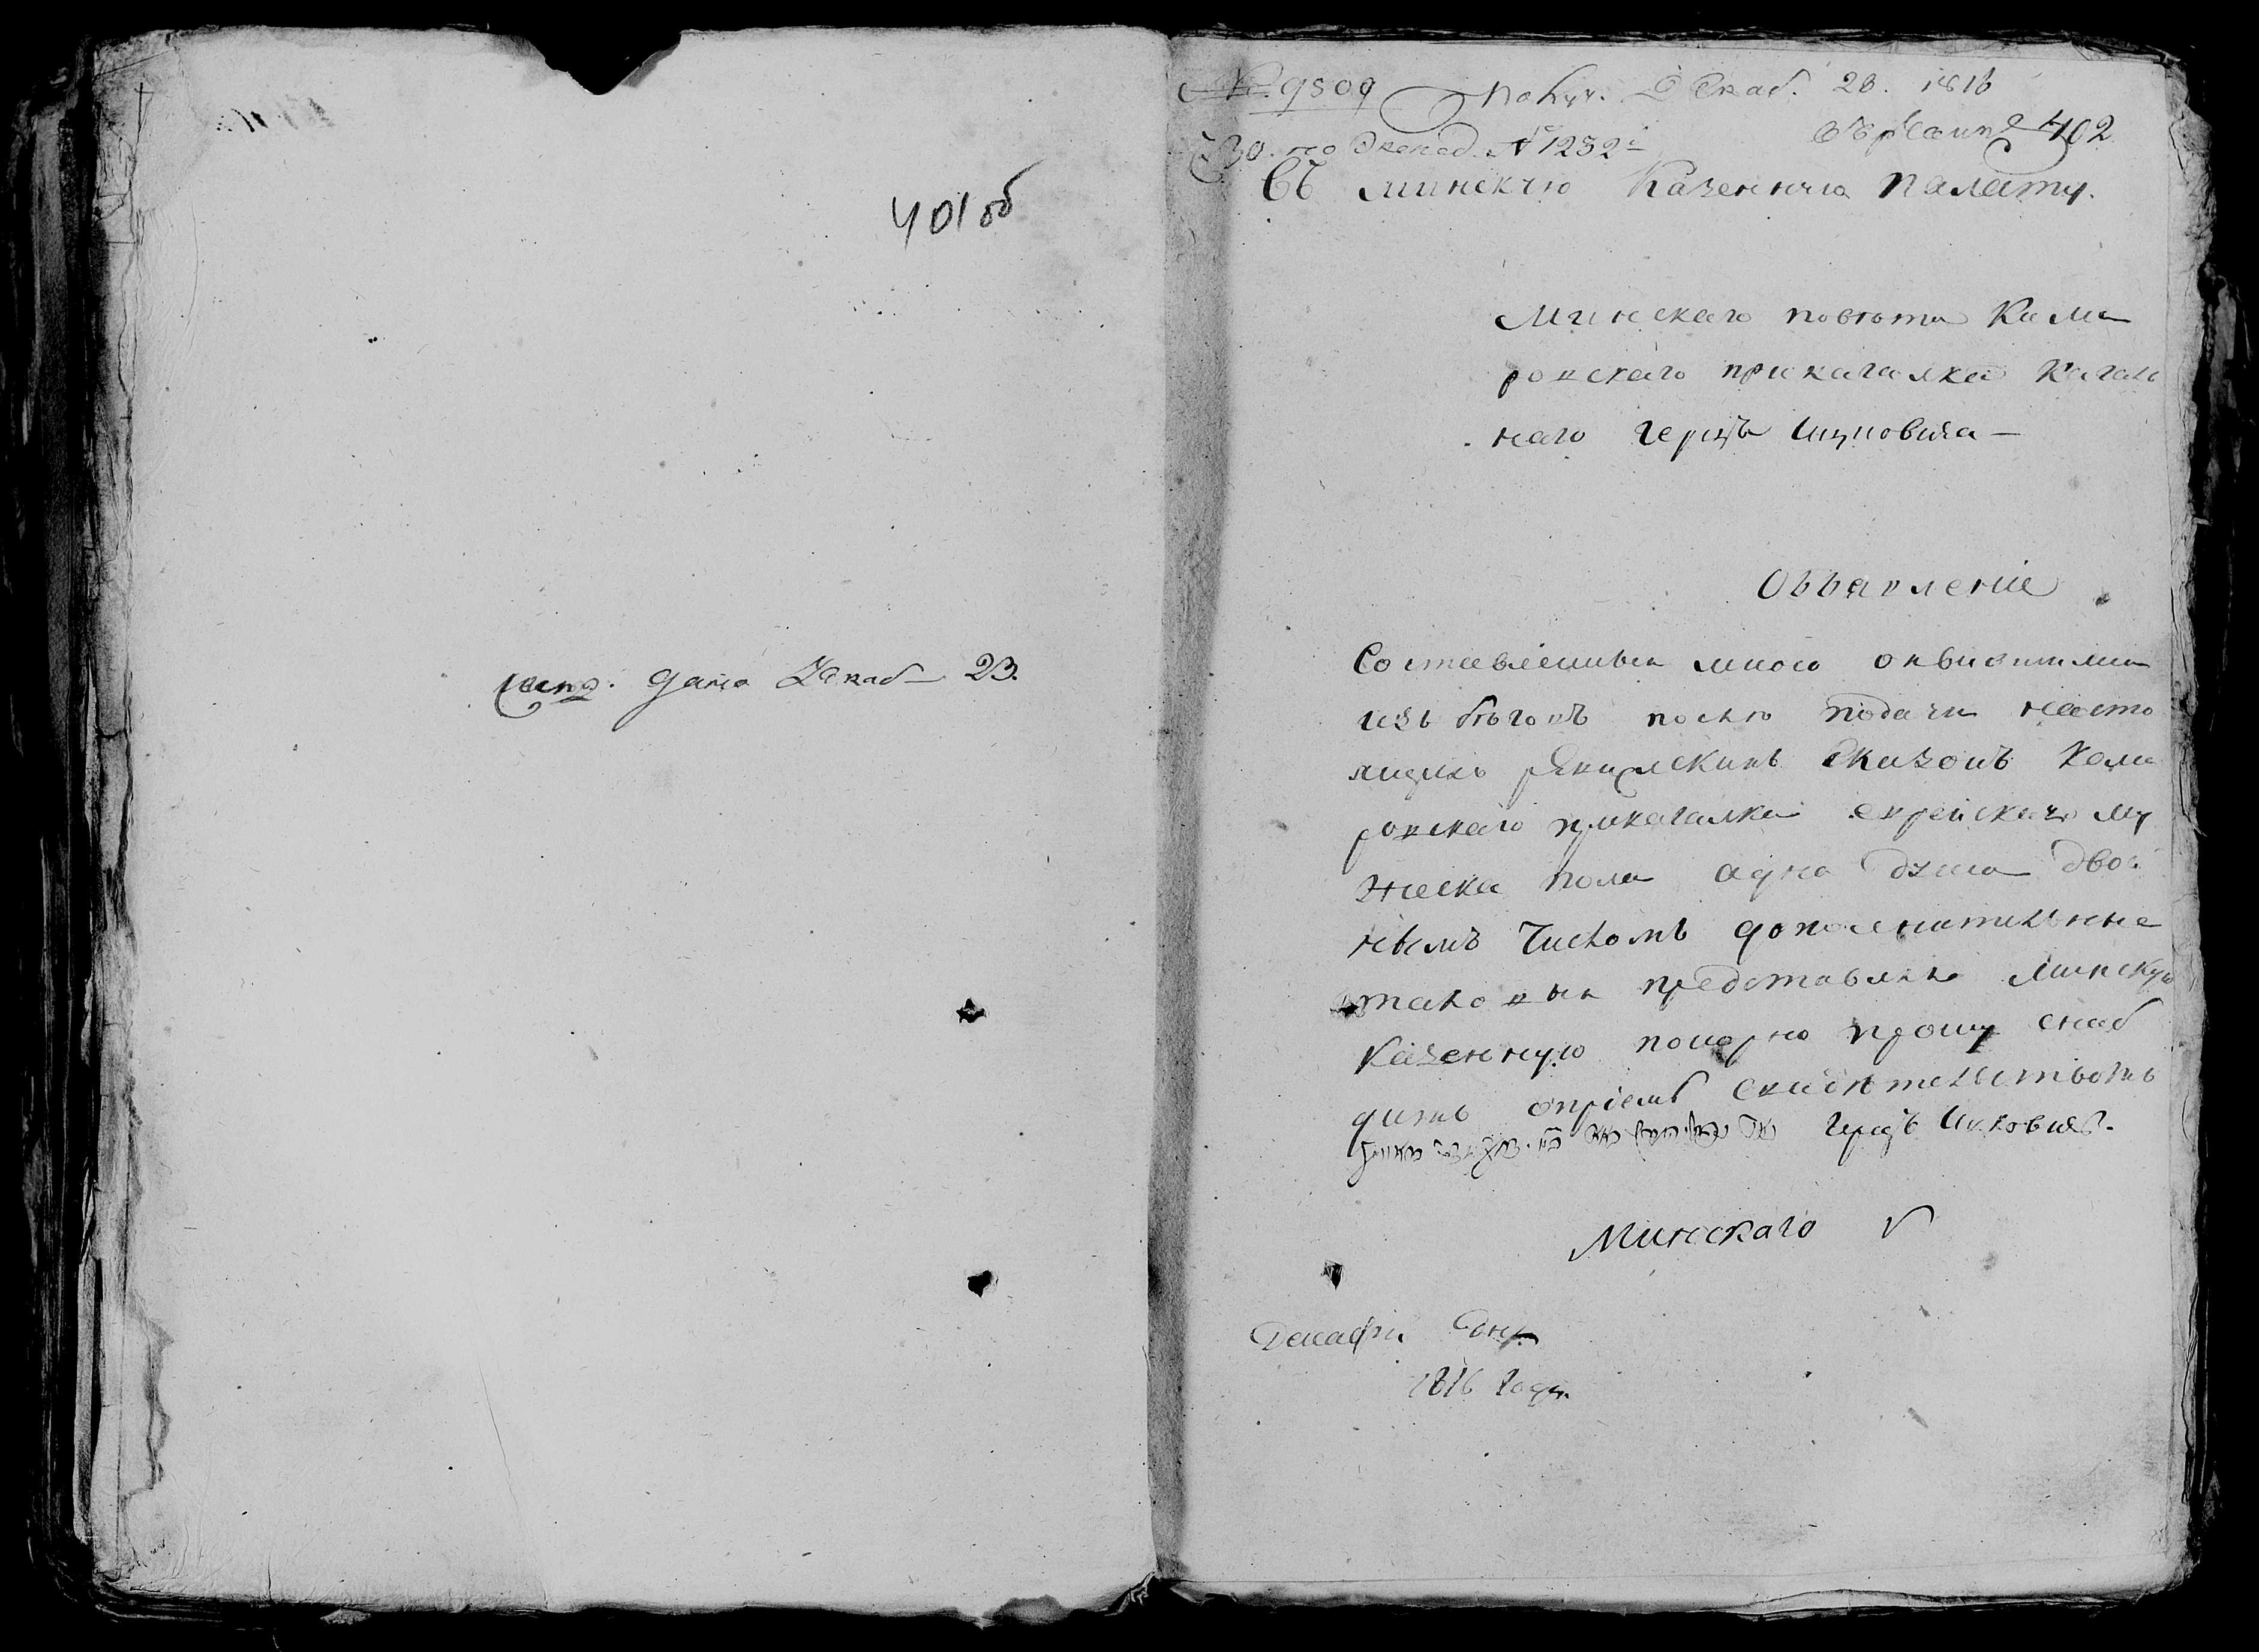 401 об
дана Декаб 23.
№. 9809 Получ. Декаб. 23. 1816
въ ревиз 402
30. по Экспед. № 1232
Въ минскую Казенную палату.
Минскаго повета Кама
ровскаго прикагалка Кагаль
наго Герцъ Ицковича —
Объявленіе
Составленныя мною оявившимся
изъ беговъ после подачи насто
ящихъ ревижскихъ сказокъ Кама
ровскаго прикагалка еврейскаго му
жеска пола адна душа двой
нымъ числомъ дополнительные
таковыя представляю минскую
Казенную покорно прошу снаб
дить опріеме свидетельствомъ
Герцъ Ицковичъ.
Минскаго
Декабря
1816 года.